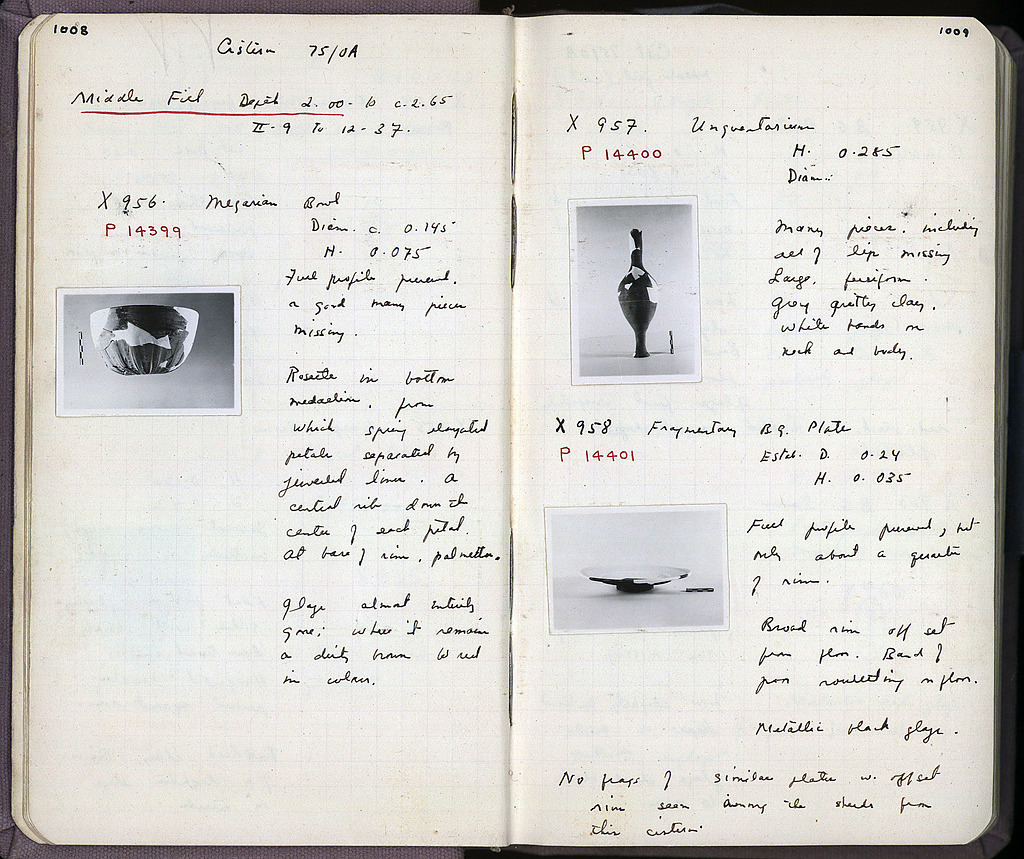 1008
Cistern 75/OA
Middle Fill Depth 2.00 to c. 2.65
II-9 to 12-37.
X 956. Megarian Bowl
P 14399
Diam. c. 0.145
H. 0.075
Full profile preserved.
a good many pieces
missing.
Rosette in bottom
medallion, from
which spring elongated
petals separated by
jewelled lines. A
central rib down the
center of each petal.
At base of rim, palmettes.
Glaze almost entirely
gone; where it remains
a dirty brown to red
in colour.
1009
X 957. Unguentarium
P 14400
H. 0.285
Diam.:
Many pieces, including
all of lip missing
Large, fusiform.
Grey gritty clay.
White bands on
neck and body.
X 958 Fragmentary B.G. Plate
P 14401
Estd. D. 0.24
H. 0.035
Full profile preserved, but
only about a quarter
of rim.
Broad rim off set
from floor. Band of
poor rouletting on floor.
Metallic black glaze.
No frags of similar plates w. offset
rim seen among the sherds from
this cistern.